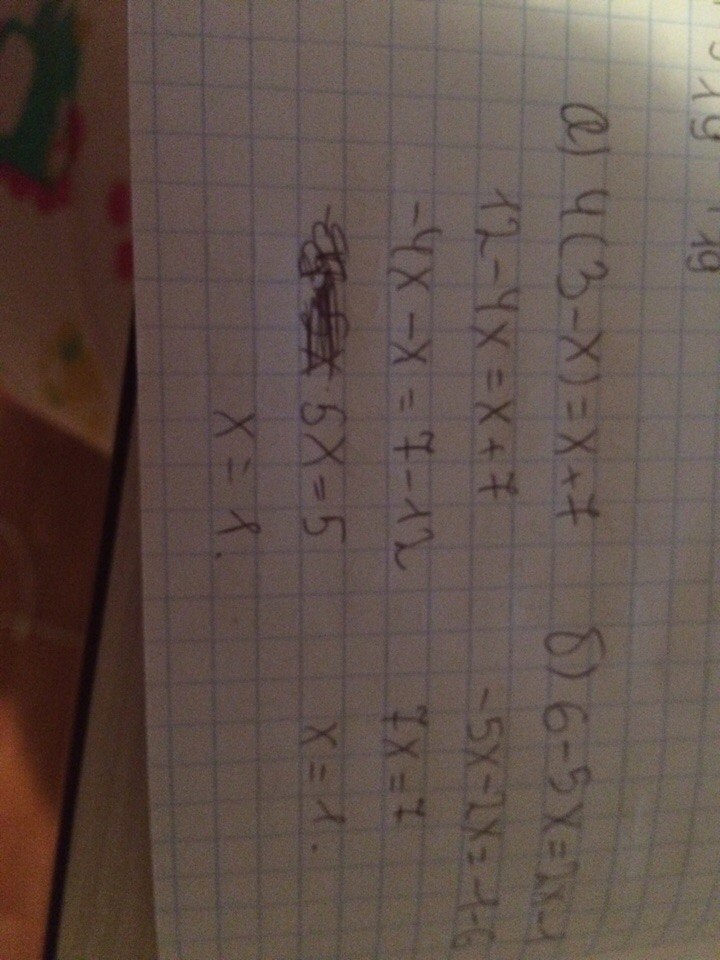 а) 4(3-x)=x+7
12-4x=x+7
-4x-x=7-12
5x=5
x=1.
б) 6-5x=2x-1
-5x-2x=-1-6
7x=7
x=1.